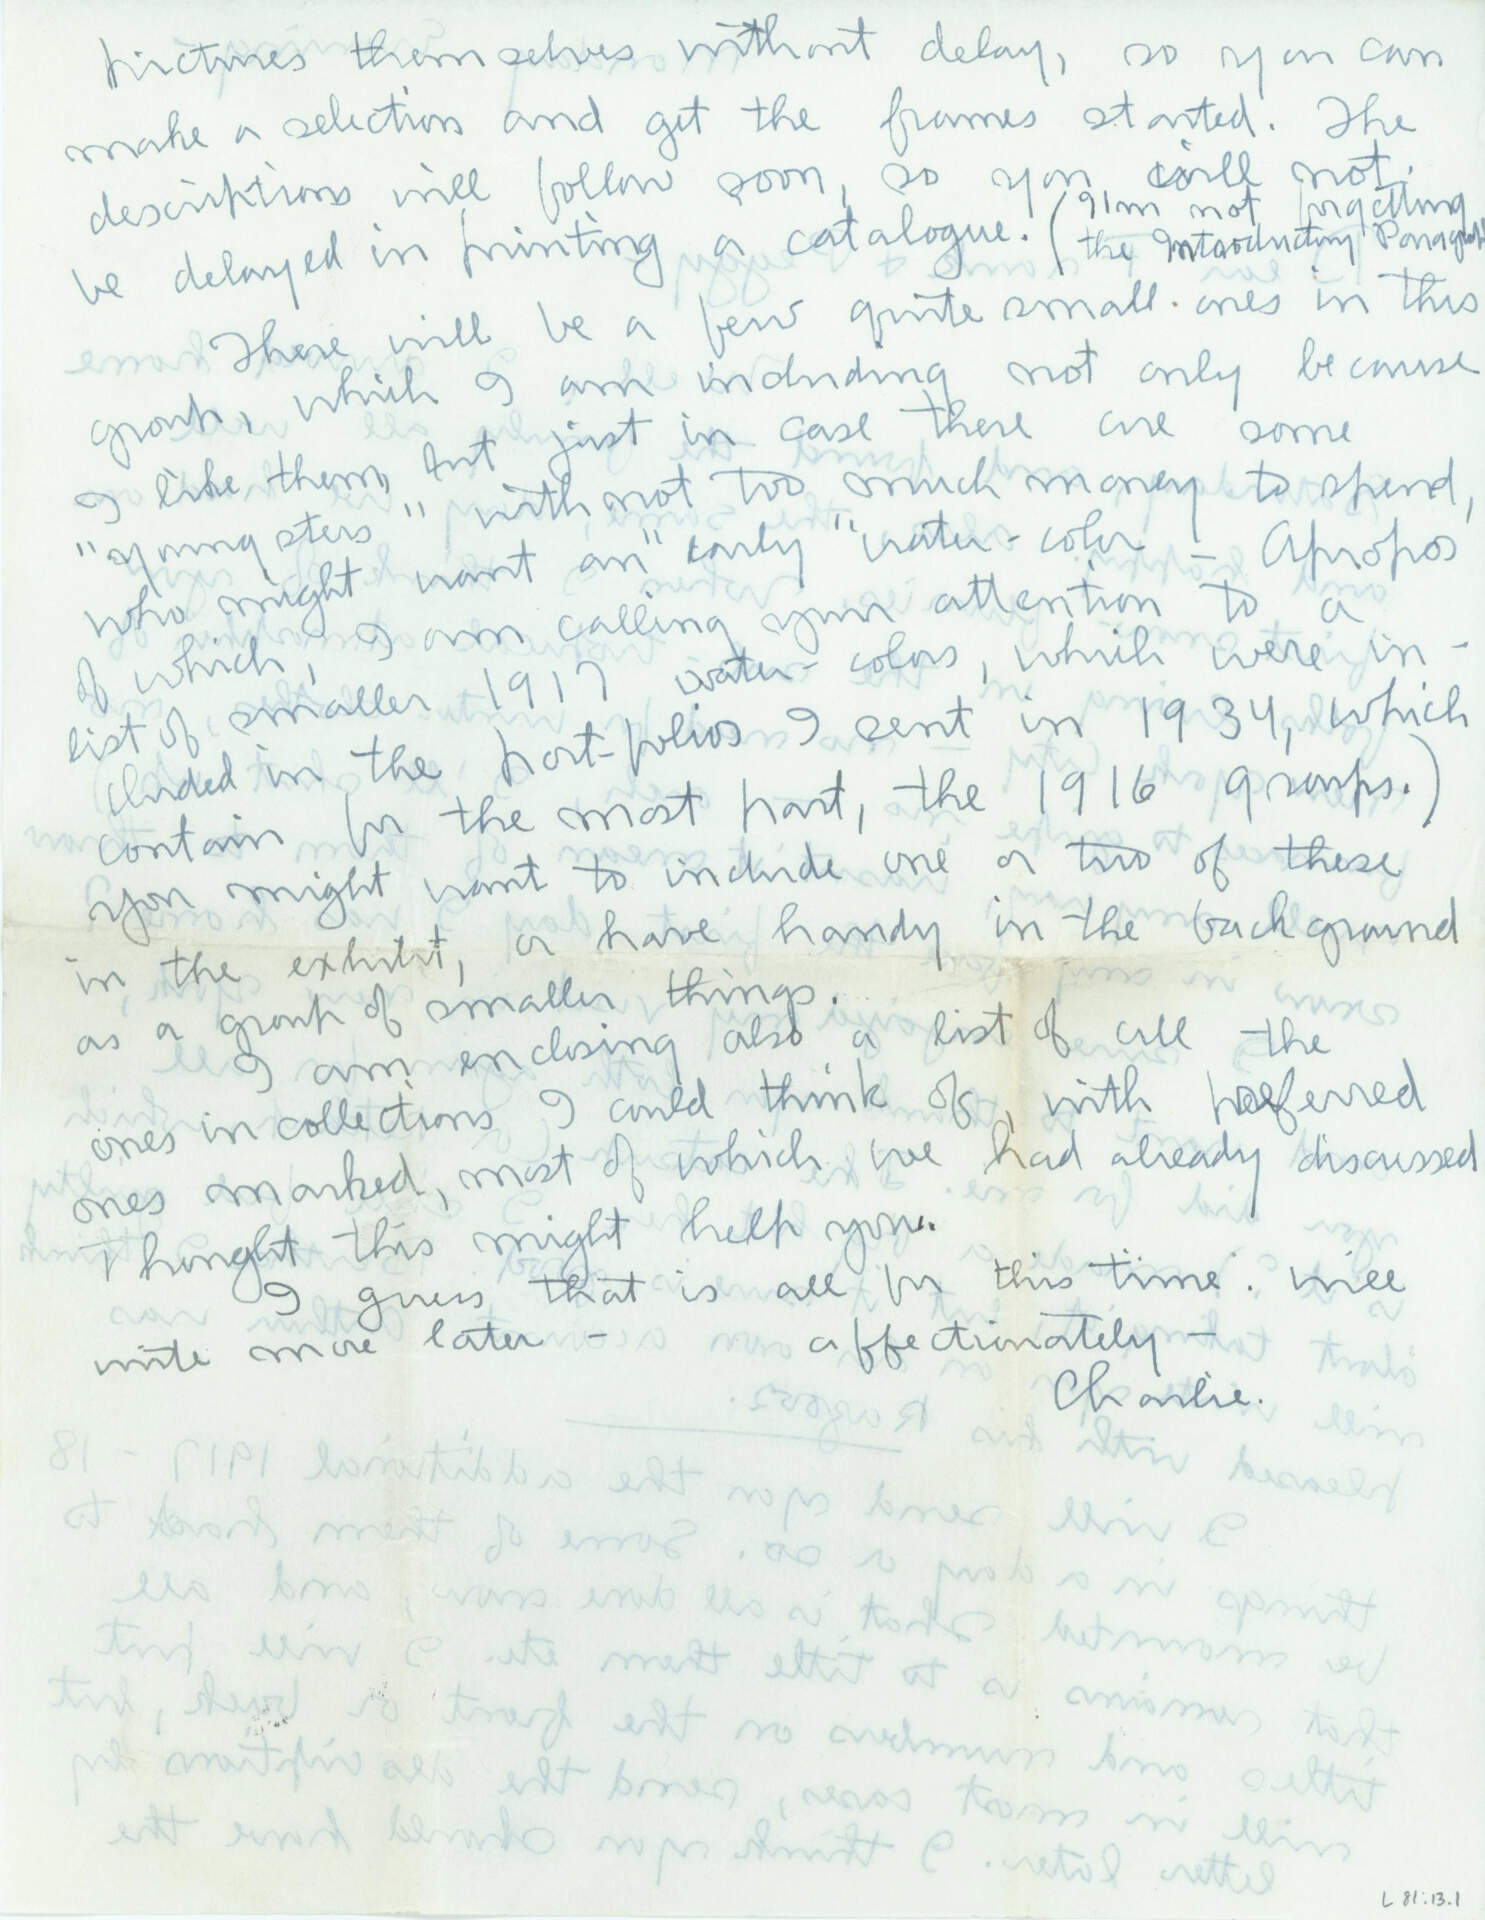 pictures themselves without delay, so you can
make a selection and get the frames started. The
descriptions will follow soon, so you will not
be delayed in printing a catalogue. (I'm not forgetting
the Introductory Paragraph
There will be a few quite small ones in this
group, which I am including not only because
I like them, but just in case there are some
"youngsters" with not too much money to spend,
who might want an "early" water-color – Apropos
of which, I am calling your attention to a
list of smaller 1917 water-colors, which were in-
cluded in the port-folios I sent in 1934, which
contain for the most part, the 1916 groups.)
You might want to include one or two of these
in the exhibit, or have handy in the background
as a group of smaller things.
I am enclosing also a list of all the
ones in collections I could think of, with preferred
ones marked, most of which we had already discussed
Thought this might help you.
I guess that is all for this time. Will
write more later – affectionately –
Charlie.
L 81:13.1